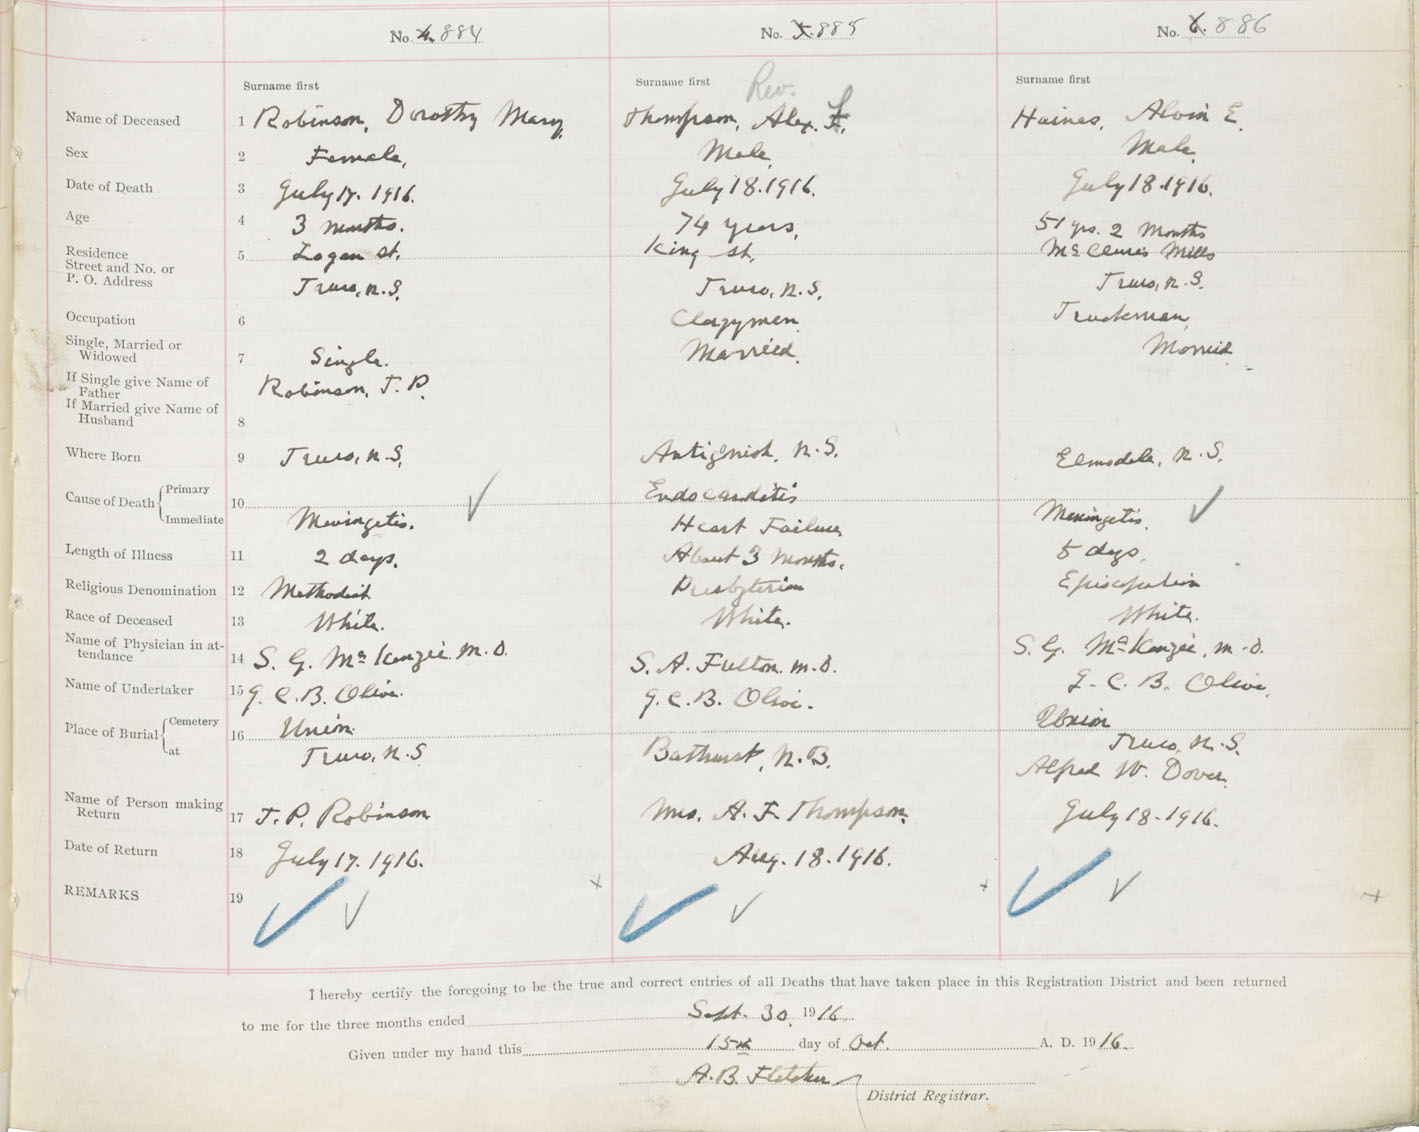 No. 4. 884 No. 5. 885 No. 6. 886
Surname first Surname first Rev. Surname first
Name of Deceased 1 Robinson, Dorothy Mary Thompson, Alex. F. Haines, Alvin E.
Sex 2 Female, Male, Male,
Date of Death 3 July 17. 1916. July 18. 1916. July 18. 1916.
Age 4 3 months. 74 years, 51 yrs. 2 Months
Residence 5 Logan St. King St, McClure's Mills
Street and No. or
P. O. Address Truro, N.S. Truro, N.S. Truro, N.S.
Occupation 6 Clergyman Truckman,
Single, Married or
Widowed 7 Single. Married. Married
If Single give Name of
Father Robinson, T. P.
If Married give Name of
Husband 8
Where Born 9 Truro, N.S. Antigonish, N.S. Elmsdale, N.S.
Cause of Death Primary 10 Endocarditis
Immediate Meningetis. Heart Failure Meningetis.
Length of Illness 11 2 days. About 3 Months. 5 days,
Religious Denomination 12 Methodist Presbyterian Episcopalian
Race of Deceased 13 White. White. White.
Name of Physician in at-
tendance 14 S. G. McKenzie, M.D. S. A. Fulton. M.D. S. G. McKenzie, M.D.
Name of Undertaker 15 G. C. B. Olive. G. C. B. Olive. G. C. B. Olive,
Place of Burial Cemetery 16 Union Union
at Truro, N.S Bathurst, N.B. Truro, N.S.
Name of Person making
Return 17 T. P. Robinson Mrs. A. F. Thompson, Alfred W. Dover,
Date of Return 18 July 17. 1916. Aug. 18. 1916. July 18. 1916.
REMARKS 19
I hereby certify the foregoing to be the true and correct entries of all Deaths that have taken place in this Registration District and been returned
to me for the three months ended Sept. 30, 1916
Given under my hand this 15th day of Oct. A. D. 1916
A. B. Fletcher
District Registrar.